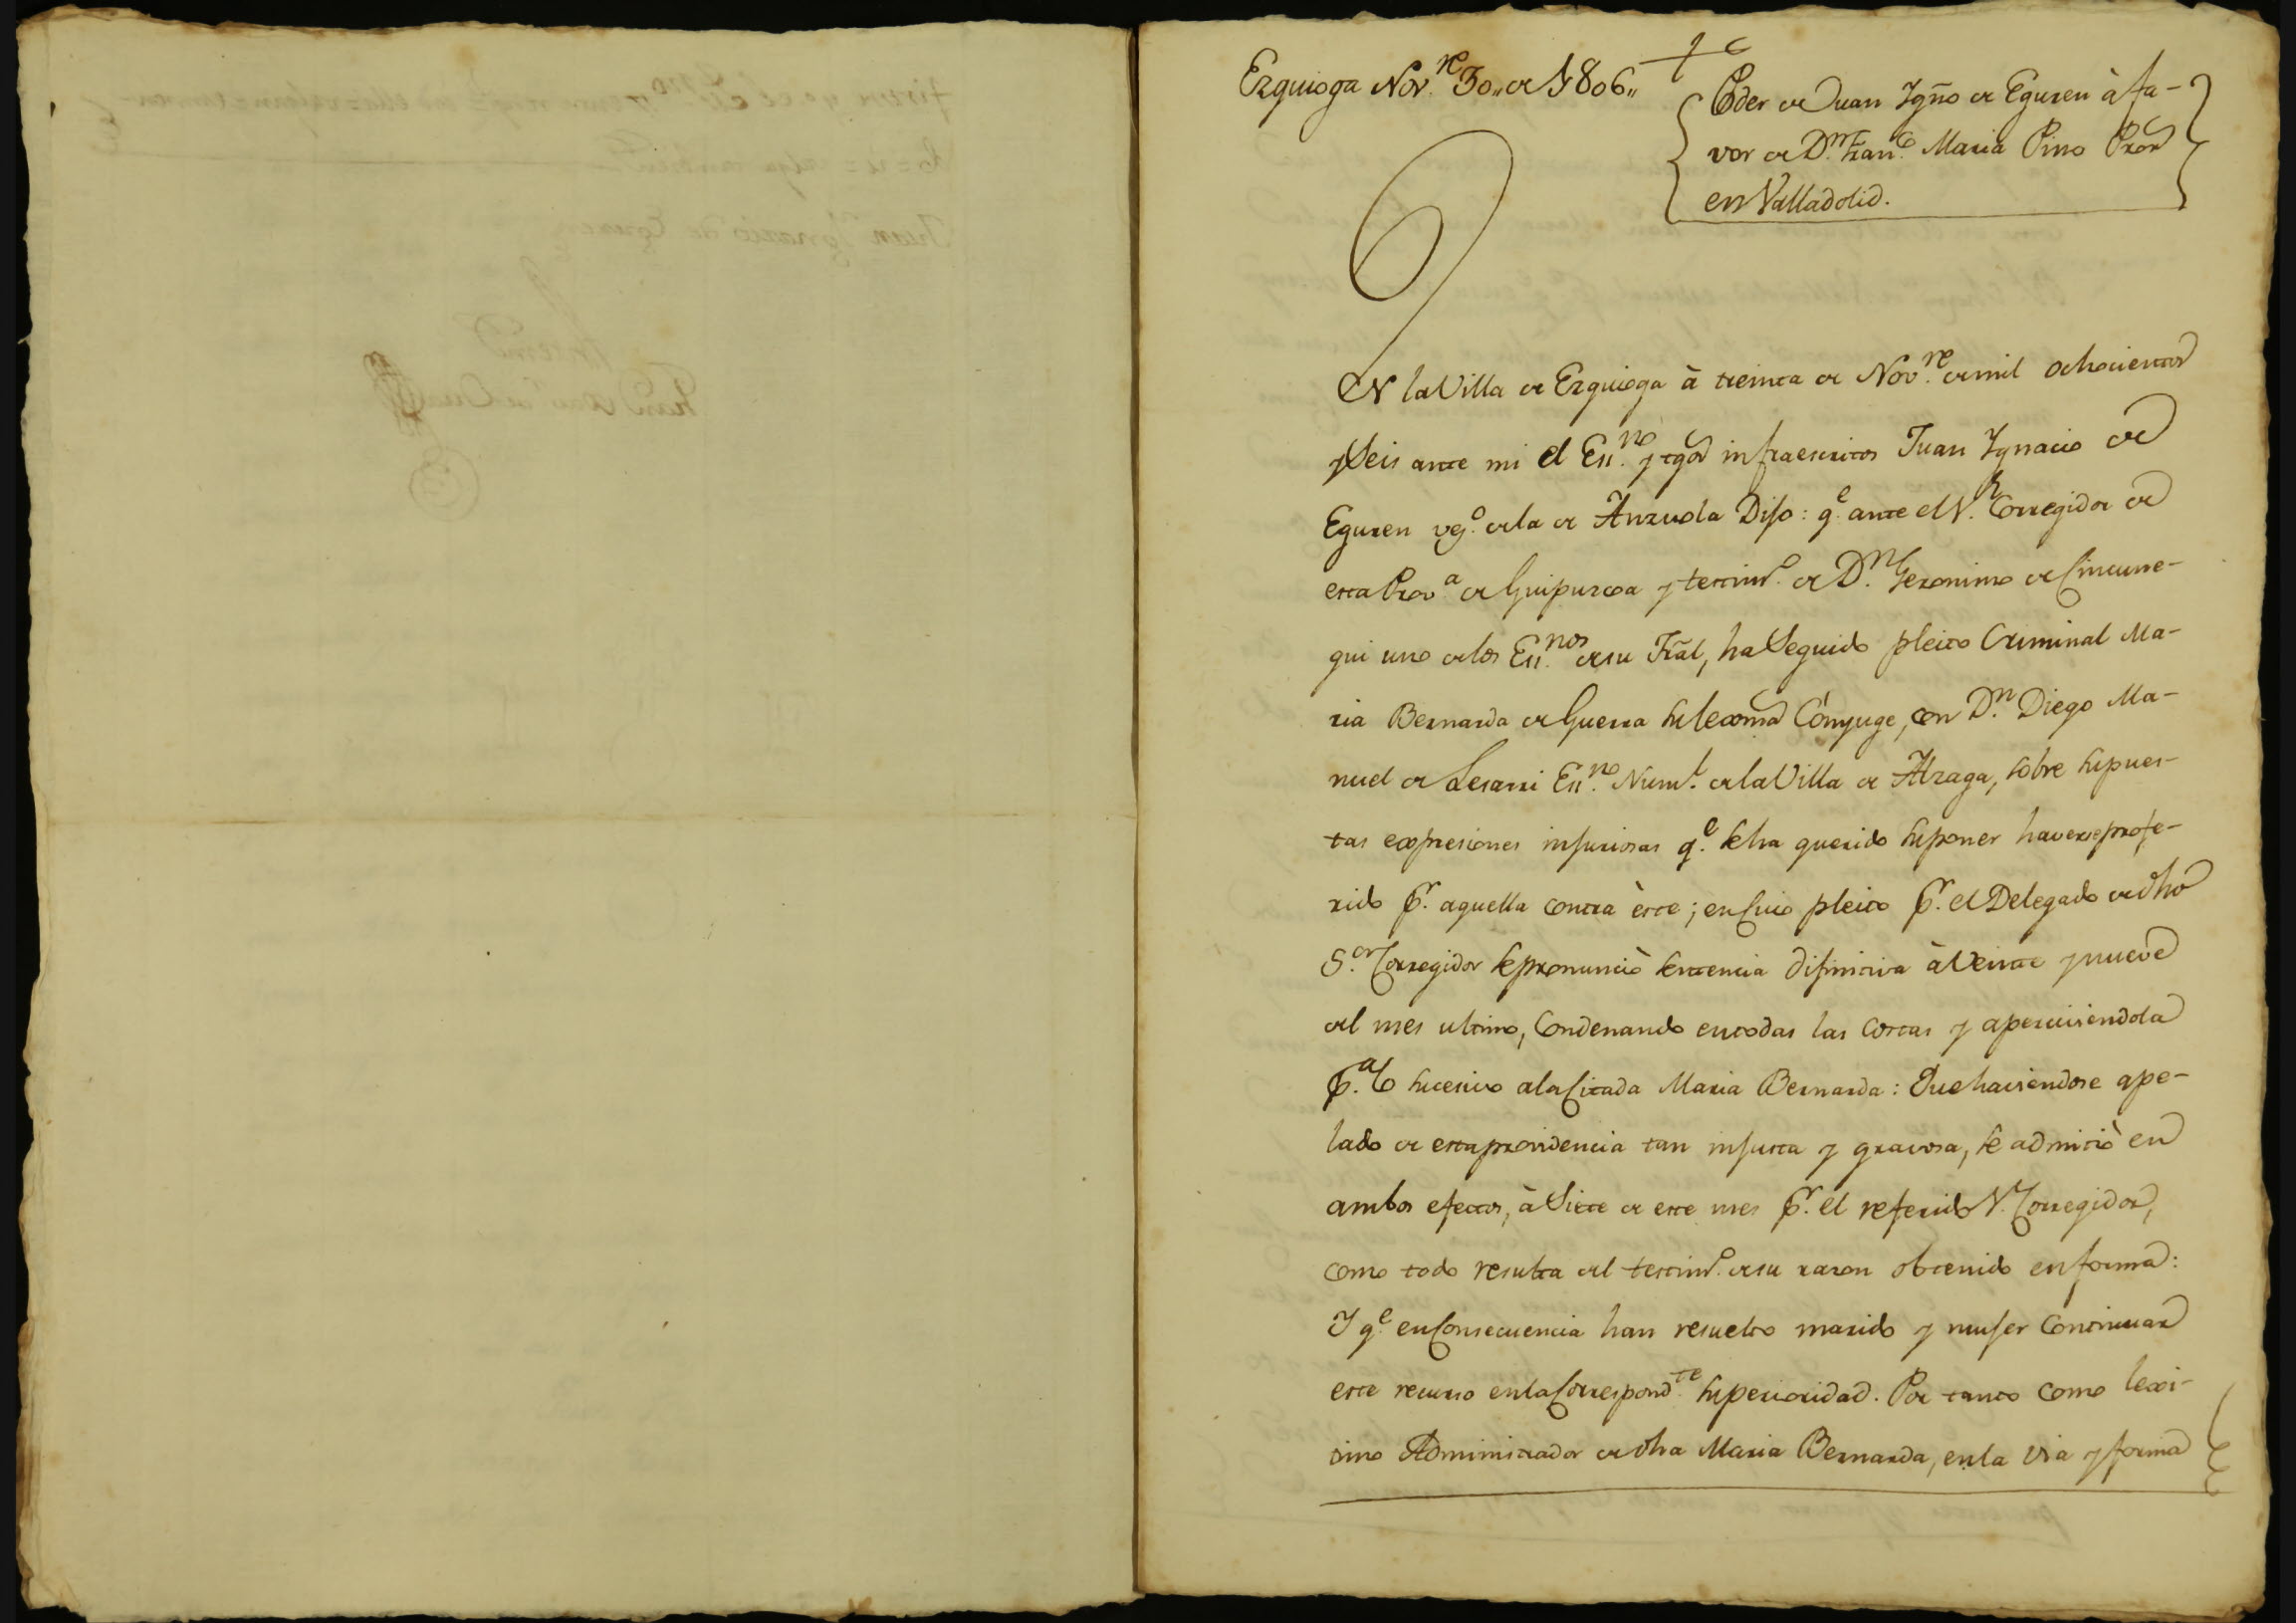 Ezquioga Nov.re 30,, de 1806,,
Poder de Juan Ygño de Eguren à fa-
vor de D.n Fran.co Maria Pino Pror
en Valladolid.
EN la Villa de Ezquioga à treinta de Nov.re de mil ochocientos
y Seis ante mi el Ess.no y tgos infraescritos Juan Ygnacio de
Eguren vcj.o de la de Anzuola Dijo: q.e ante el S.r Corregidor de
esta Prov.a de Guipuzcoa y testim.o de D.n Geronimo de Cincune-
gui uno de los Ess.nos de su Trâl, ha Seguido pleito Criminal Ma-
ria Bernarda de Guerra su lexma Cónyuge, con D.n Diego Ma-
nuel de Lesarri Ess.no Num.l de la Villa de Alzaga, sobre supues-
tas expresiones injuriosas q.e se ha querido suponer haverse profe-
rido p.r aquella contra èste; en Cuio pleito p.r el Delegado de dho
S.or Corregidor se pronunciò sentencia difinitiva à Veinte y nueve
del mes ultimo, Condenando en todas las Costas y aperciviendola
p.a lo sucesivo a la Citada Maria Bernarda: Que haviendose ape-
lado de esta providencia tan injusta y gravosa, se admitiò en
ambos efectos, à Siete de este mes p.r el referido S.r Corregidor,
como todo resulta del testim.o de su razon obtenido en forma:
Y q.e en Consecuencia han resuelto marido y mujer Continuar
este recurso en la Correspond.te Superioridad. Por tanto como lexi-
timo Administrador de dha Maria Bernarda, en la via y forma